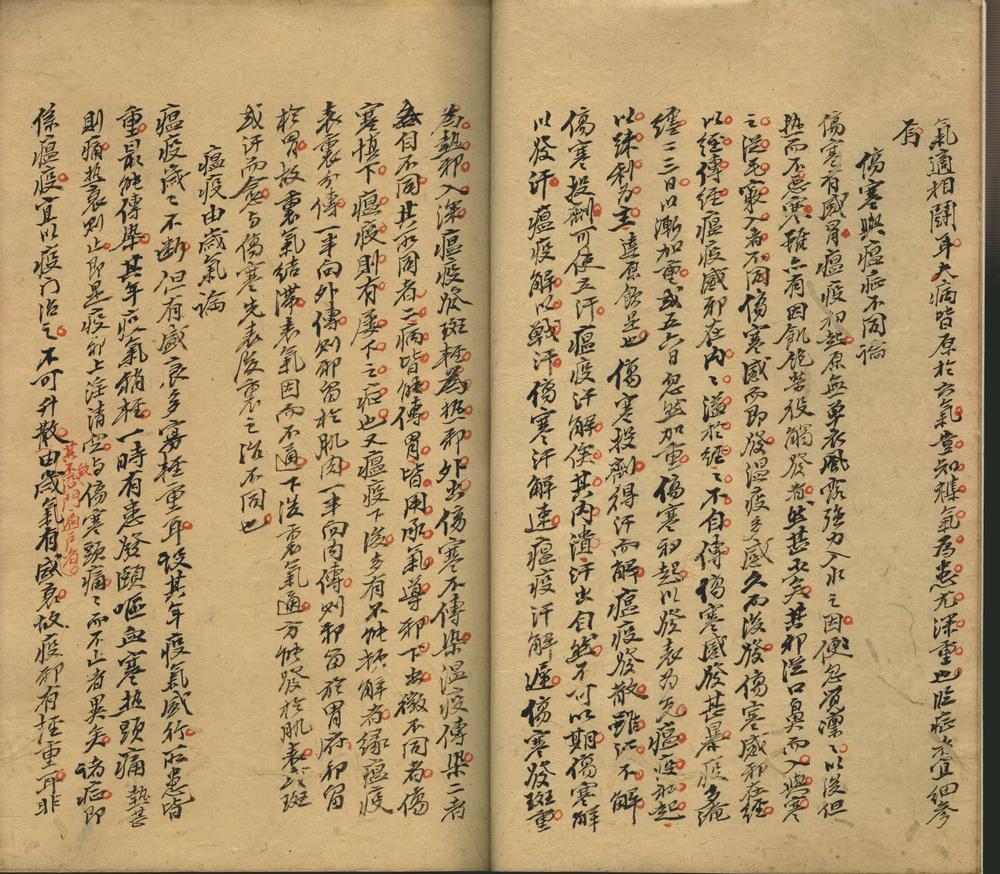 氣適相鬪耳大病皆原於六氣豈知襍氣為患尤深重也臨症最宜細參
有
傷寒與瘟症不同論
傷寒有感冒瘟疫初起原無单衣風露強力入水之因便忽覺凜凜以後但
热而不悪寒雖亦有因飢飽勞役觸發者然甚少矣其邪従口鼻而入與寒
之從毛竅入者不同傷寒感而即發温疫多感久而後發傷寒感邪在經
以經傳經瘟疫感邪在內內溢於經經不自傳傷寒感發甚暴疫多淹
纏二三日以漸加重或五六日忽然加重傷寒初起以發表為先瘟疫初起
以疎利為主達原飲是也傷寒投劑得汗而解瘟疫發散雖汗不解
傷寒投劑可使立汗瘟疫汗解俟其內潰汗出自然不可以期傷寒解
以發汗瘟疫解以戰汗傷寒汗解速瘟疫汗解遲傷寒發斑重
為熱邪入深瘟疫發斑輕為热邪外出傷寒不傳染温疫傳染二者
各自不同其所同者二病皆能傳胃皆用承氣導邪下出微不同者傷
寒慎下瘟疫則有屡下之症也又瘟疫下後多有不能頓解者緣瘟疫
表裏分傳一半向外傳則邪留於肌肉一半向内傳则邪留於胃府邪留
於胃故裏氣結滯表氣因而不通下後裏氣通方能發於肌表或斑
或汗而愈与傷寒先表後裏之治不同也
瘟疫由歲氣論
瘟疫歲歲不断但有盛衰多寡輕重耳設其年疫氣盛行所患皆
重最能傳染其年疫氣稍輕一時有患發頤嘔血寒热頭痛熱甚
則痛热衰则止即是疫邪上淫清空与傷寒頭痛痛而不止者異矣诸症即
其不啟門逾戶者
係瘟疫宜以疫门治之不可升散由歲氣有盛衰故疫邪有輕重耳非